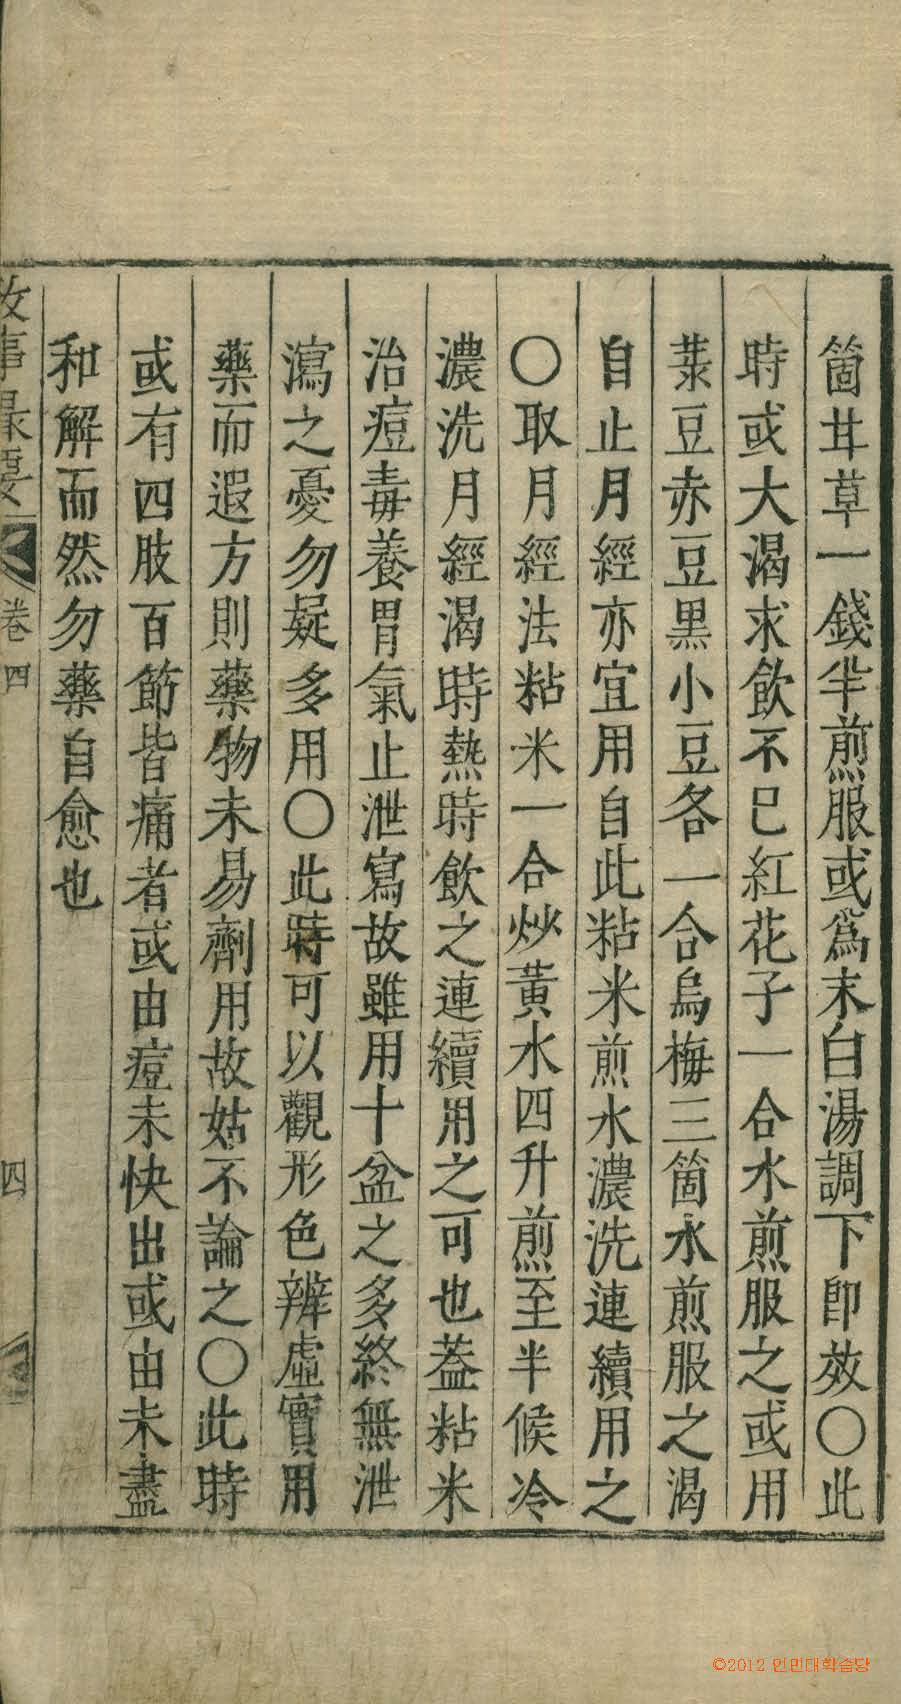 箇甘草一錢半煎服或爲末白湯調下卽效〇此
時或大渴求飲不已紅花子一合水煎服之或用
菉豆赤豆黑小豆各一合烏梅三箇水煎服之渴
自止月經亦宜用自此粘米煎水濃洗連續用之
〇取月經法粘米一合炒黃水四升煎至半候冷
濃洗月經渴時熱時飲之連續用之可也蓋粘米
治痘毒養胃氣止泄寫故雖用十盆之多終無泄
瀉之憂勿疑多用〇此時可以觀形色辨虛實用
藥而遐方則藥物未易劑用故姑不論之〇此時
或有四肢百節皆痛者或由痘未快出或由未盡
和解而然勿藥自愈也
攷事最要 卷四 四
©2012 인민대학습당